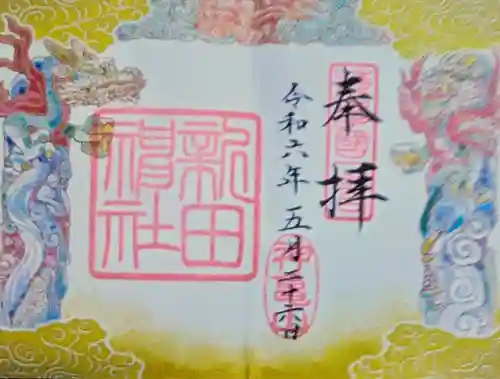 奉拝
令和六年五月二十六日
新田
神社